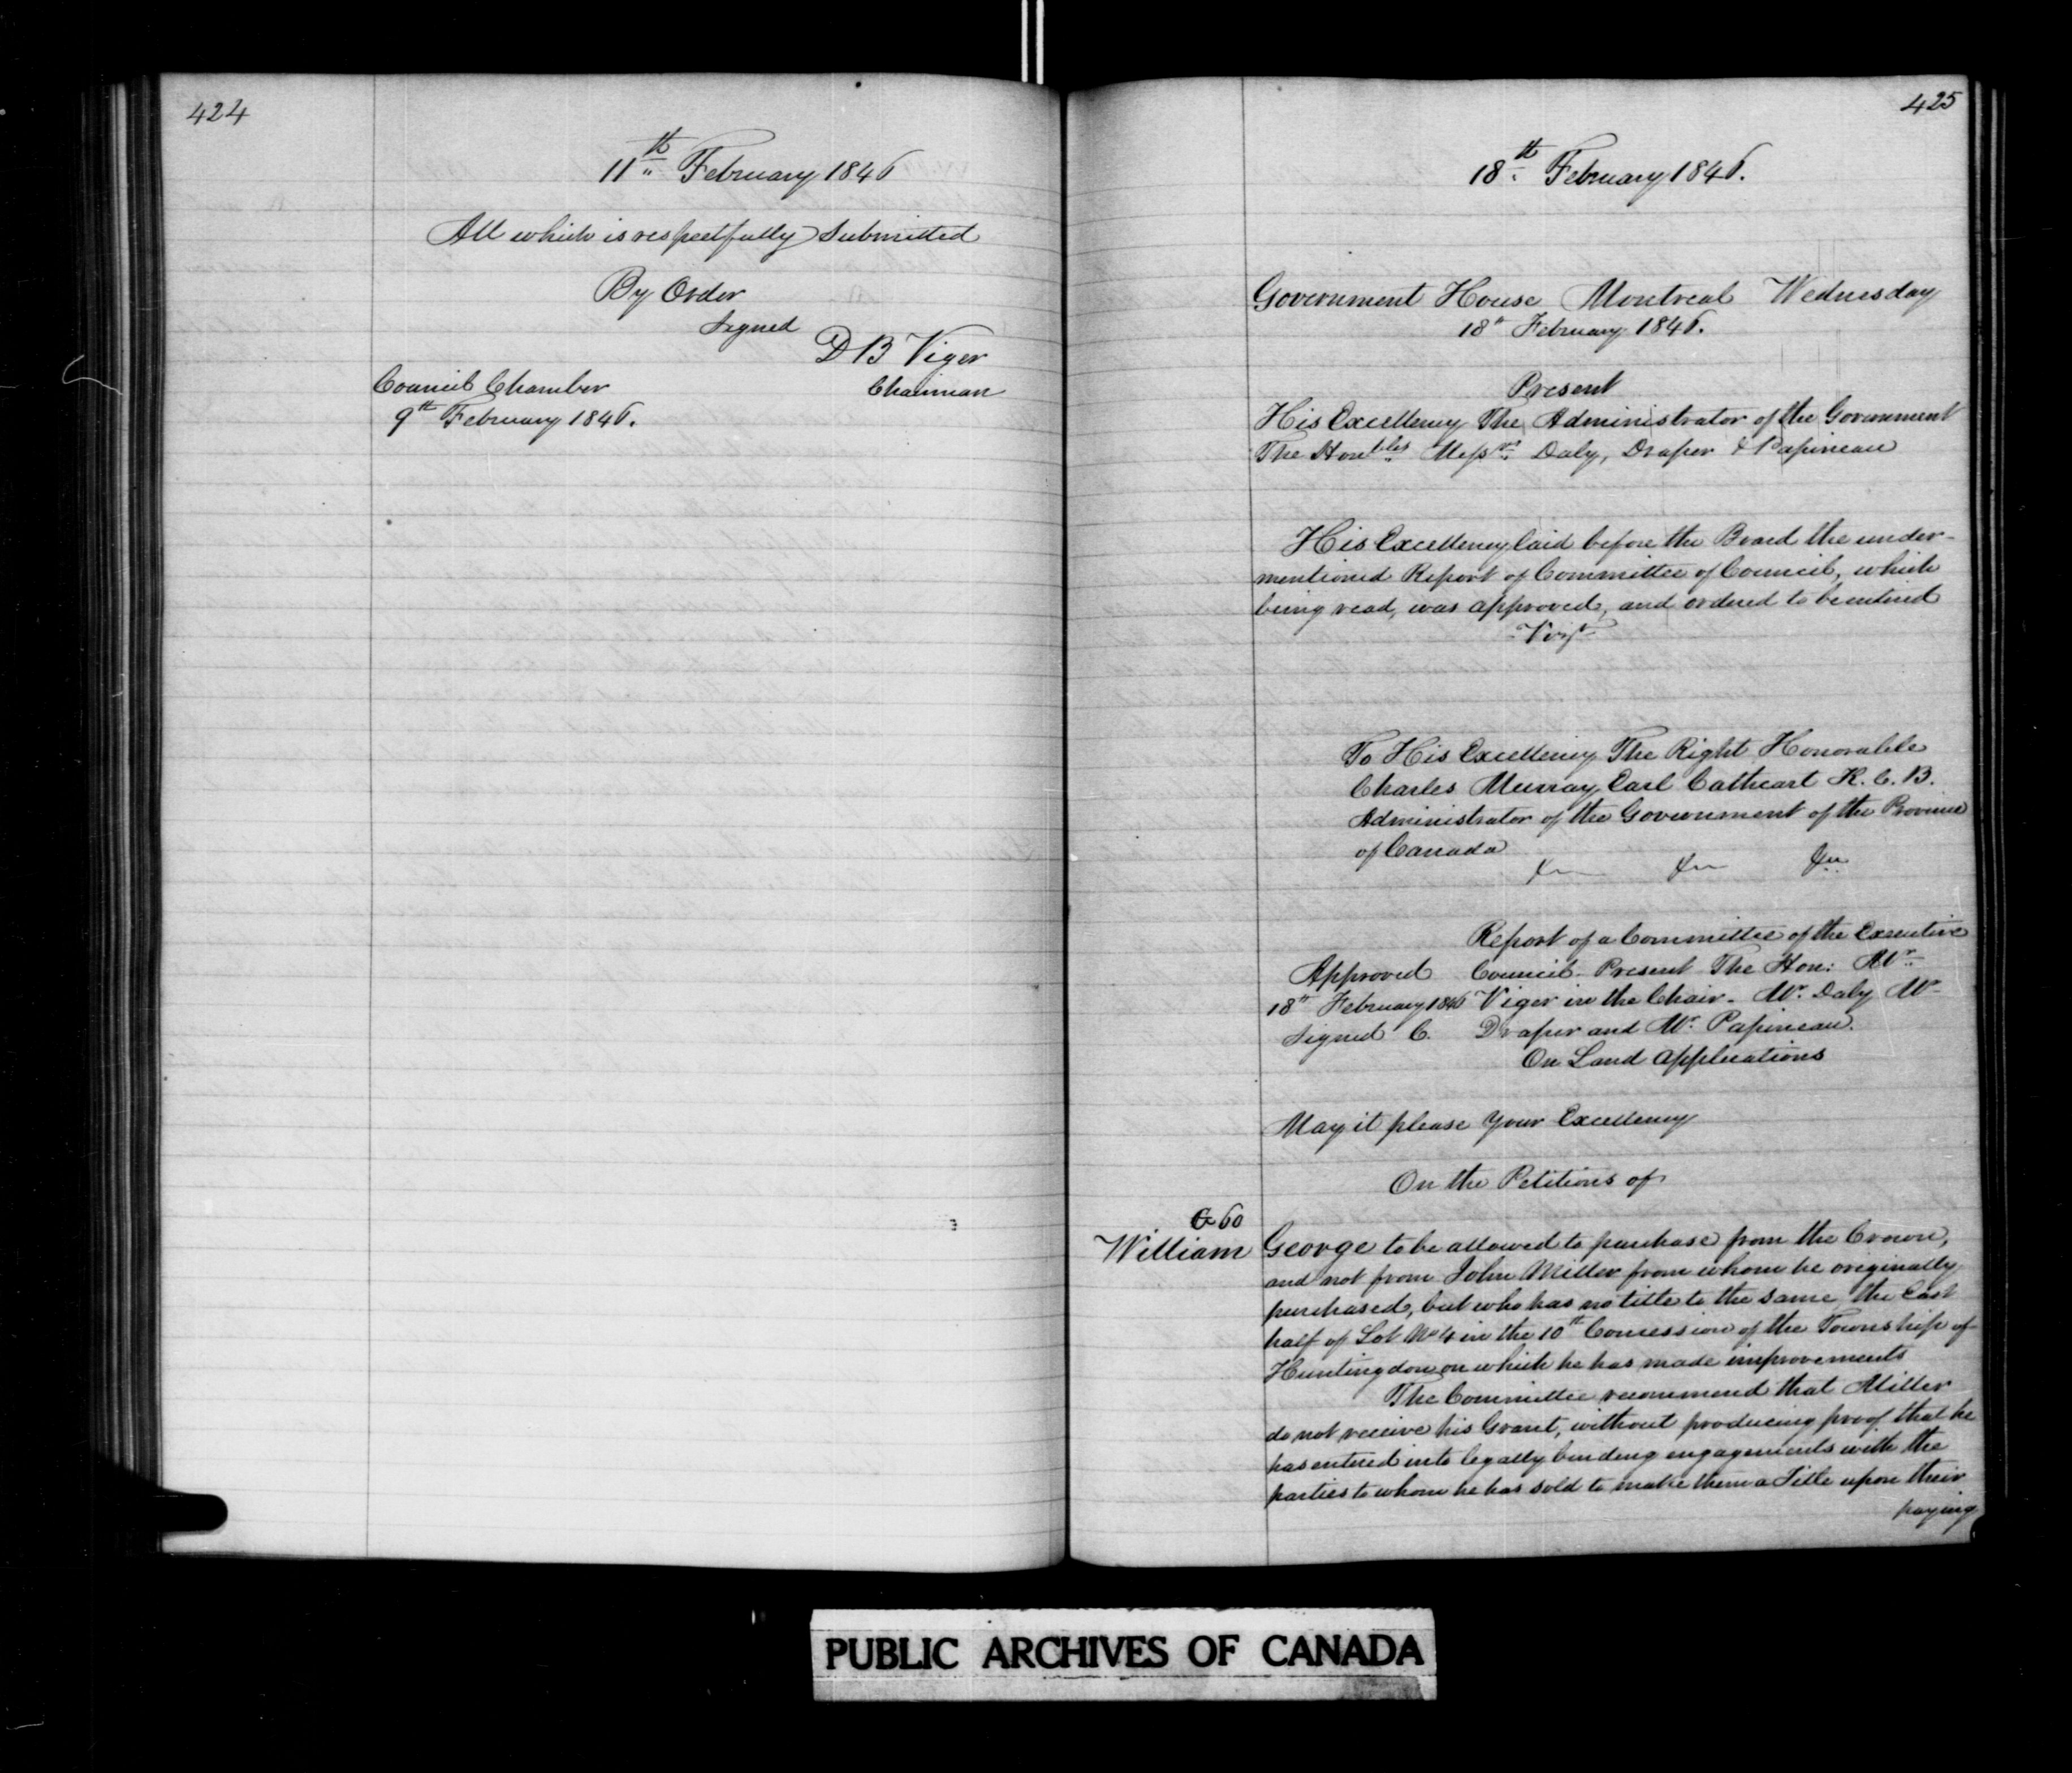 424
11th February 1846
All which is respectfully Submitted
By Order
Signed
D B Viger
Chairman
Council Chamber
9th February 1846.
425
18th February 1846.
Government House Montreal Wednesday
18th February 1846.
Present
His Excellency The Administrator of the Government
The Honbles Messrs Daly, Draper & Papineau
His Excellency laid before the Board the under-
mentioned Report of Committee of Council, which
being read, was approved, and ordered to be entered
Vizt
To His Excellency The Right Honorable
Charles Murray Earl Cathcart K. C. B.
Administrator of the Government of the Province
of Canada
&c &c &c
Report of a Committee of the Executive
Approved Council- Present The Hon: Mr
18th February 1846 Viger in the Chair- Mr. Daly Mr
Signed C. Draper and Mr. Papineau.
On Land applications
May it please Your Excellency
On the Petitions of
G 60
William George to be allowed to purchase from the Crown,
and not from John Miller from whom he originally
purchased, but who has no title to the same, the East
half of Lot No 4 in the 10th Concession of the Township of
Huntingdon on which he has made improvements
The Committee recommend that Miller
do not receive his Grant, without producing proof that he
has entered into legally binding engagements with the
parties to whom he has sold to make them a Title upon their
paying
PUBLIC ARCHIVES OF CANADA